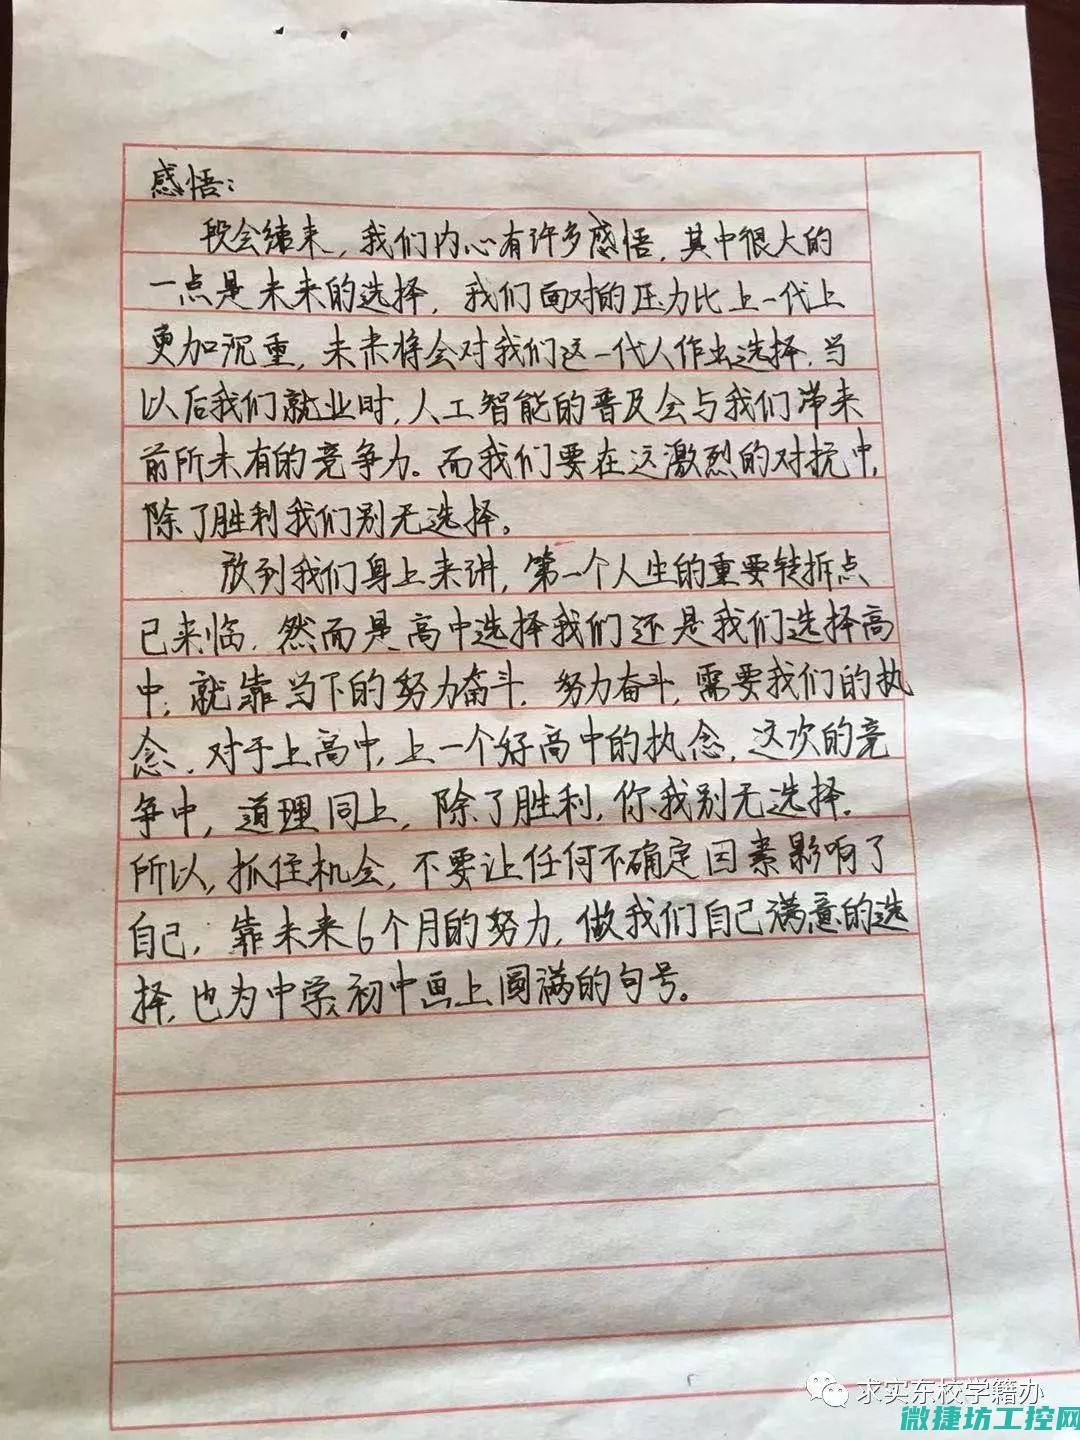 感悟：
段会结束，我们内心有许多感悟，其中很大的
一点是未来的选择，我们面对的压力比上一代上
更加沉重，未来将会对我们这一代人作出选择，当
以后我们就业时，人工智能的普及会与我们带来
前所未有的竞争力。而我们要在这激烈的对抗中，
除了胜利我们别无选择。
放到我们身上来讲，第一个人生的重要转折点
已来临，然而是高中选择我们还是我们选择高
中，就靠当下的努力奋斗，努力奋斗，需要我们的执
念，对于上高中，上一个好高中的执念，这次的竞
争中，道理同上，除了胜利，你我别无选择。
所以，抓住机会，不要让任何不确定因素影响了
自己，靠未来6个月的努力，做我们自己满意的选
择，也为中学，初中画上圆满的句号。
求实东校学籍办
微捷坊工控网